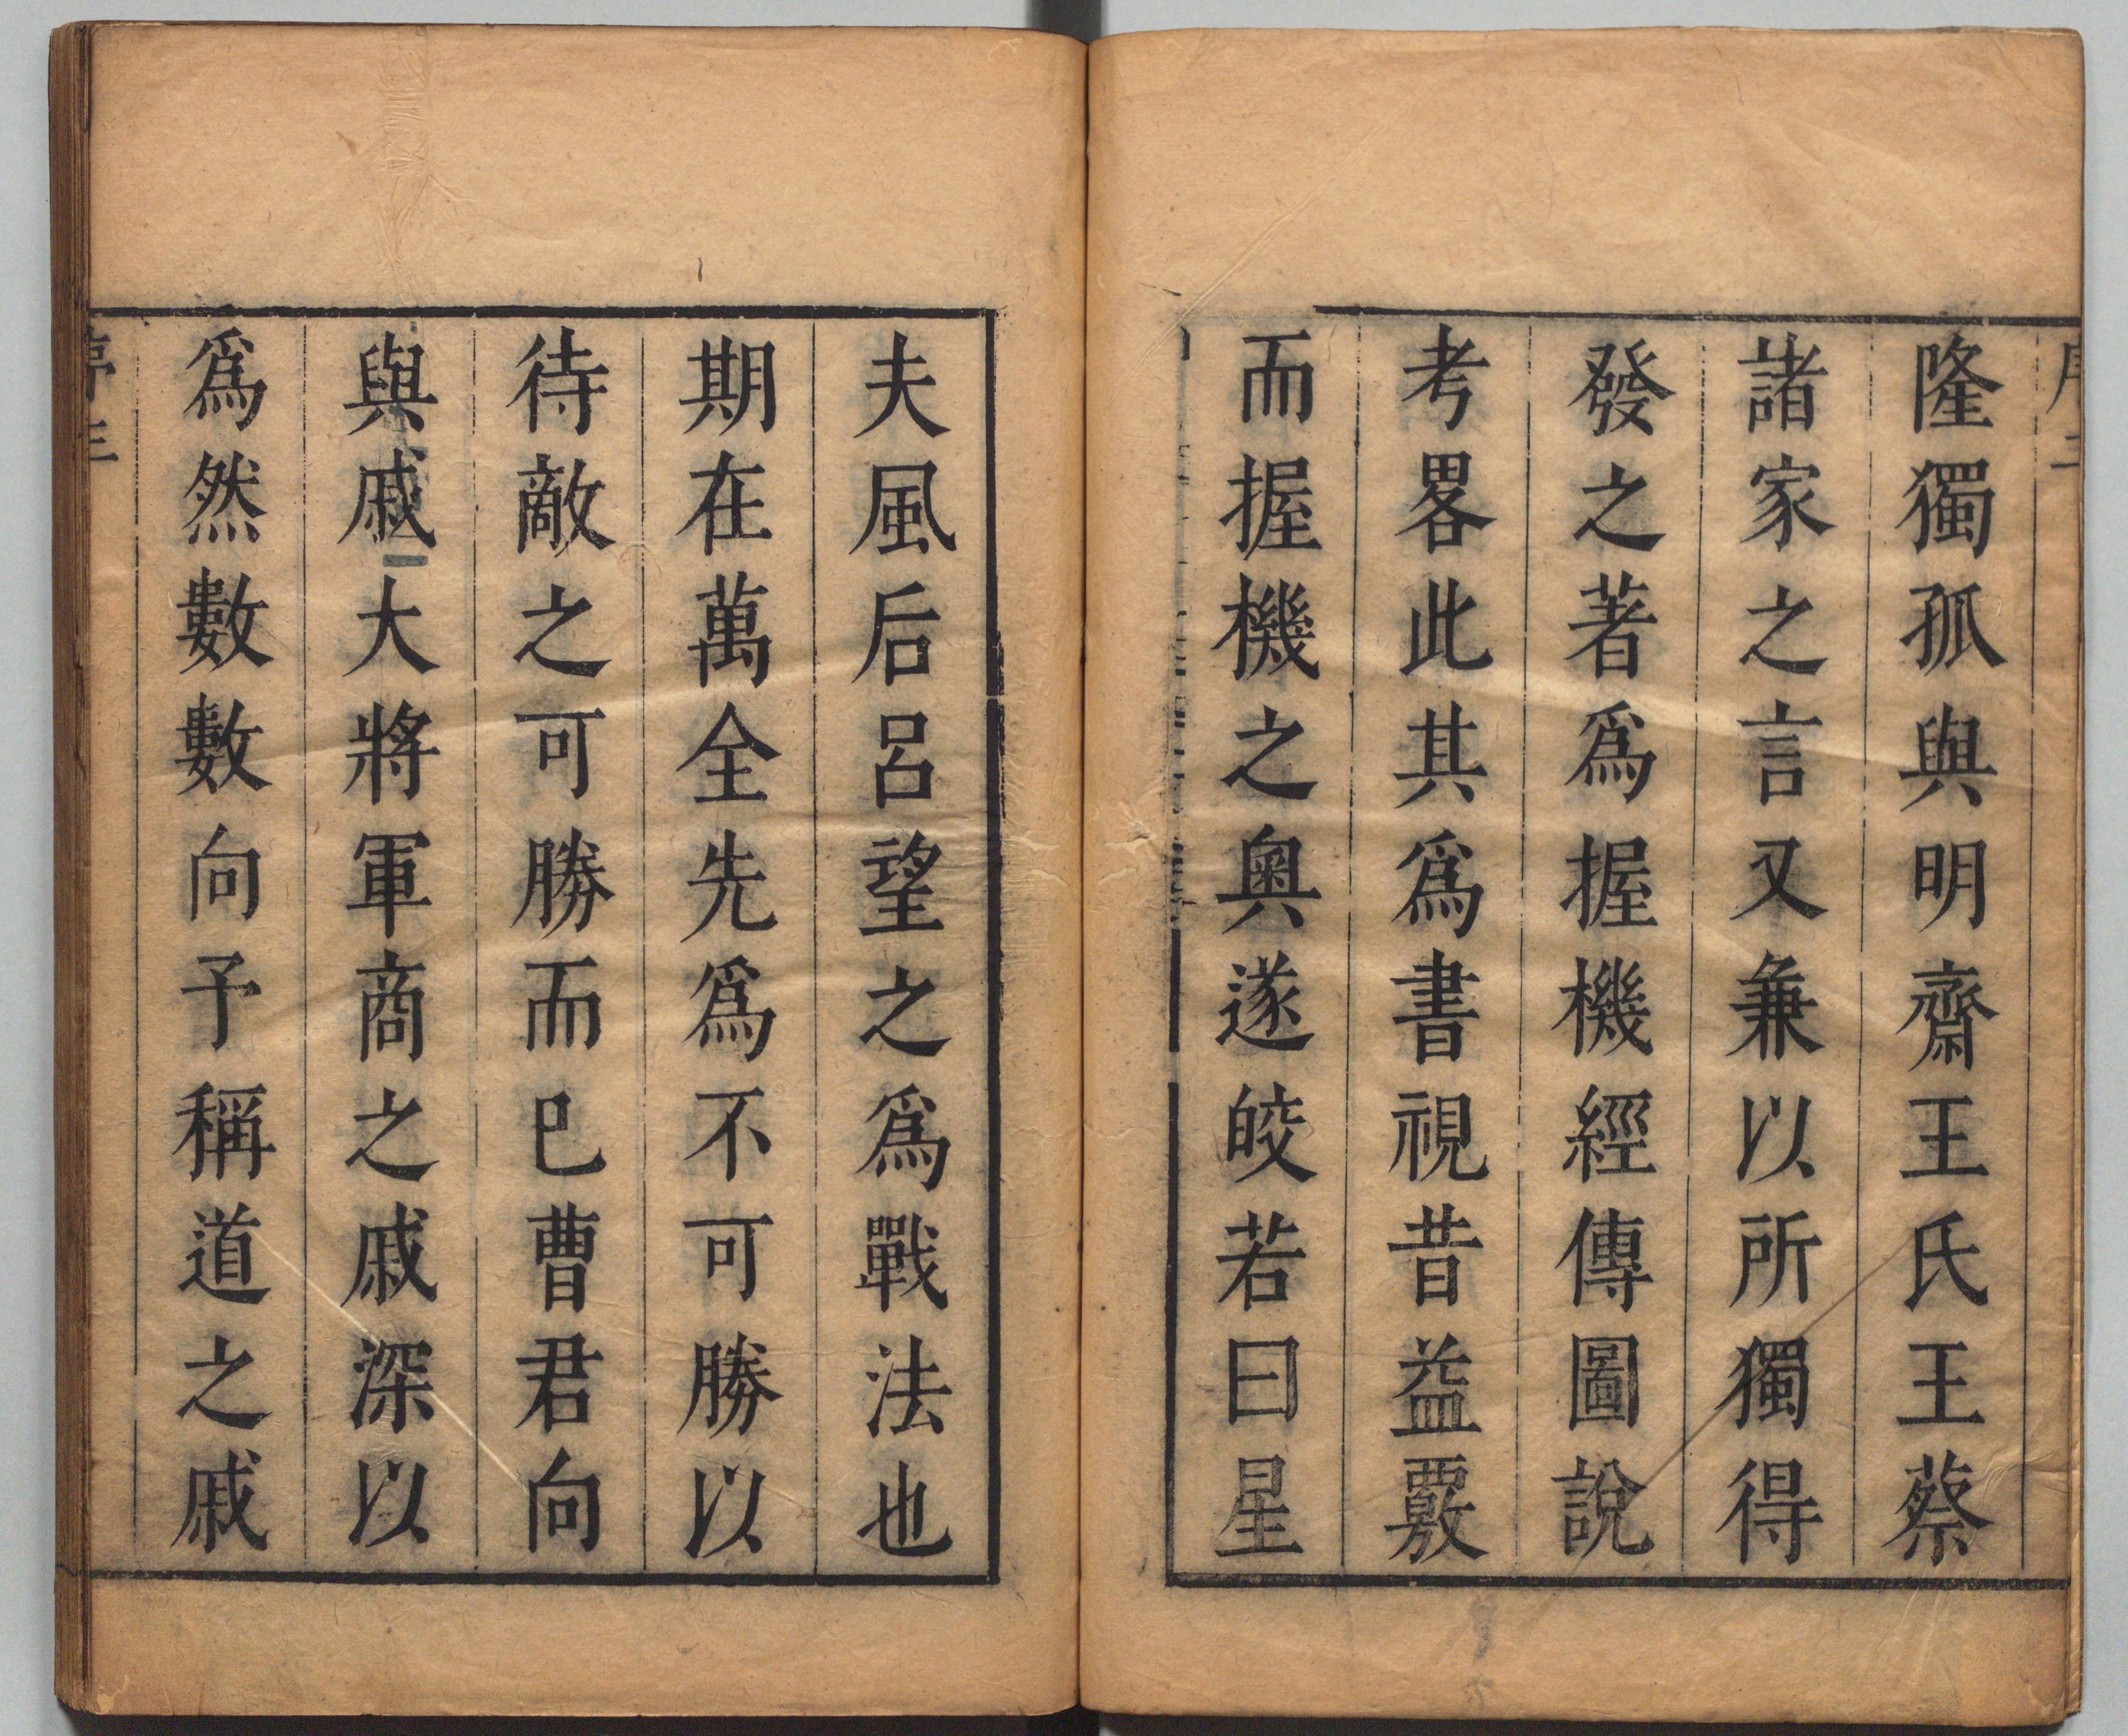 隆獨孤與明齋王氏王蔡
諸家之言又兼以所獨得
發之著爲握機經傳圖說
考畧此其爲書視昔益覈
而握機之奧遂皎若日星
夫風后呂望之爲戰法也
期在萬全先爲不可勝以
待敵之可勝而已曹君向
與戚大將軍商之戚深以
爲然數數向予稱道之戚